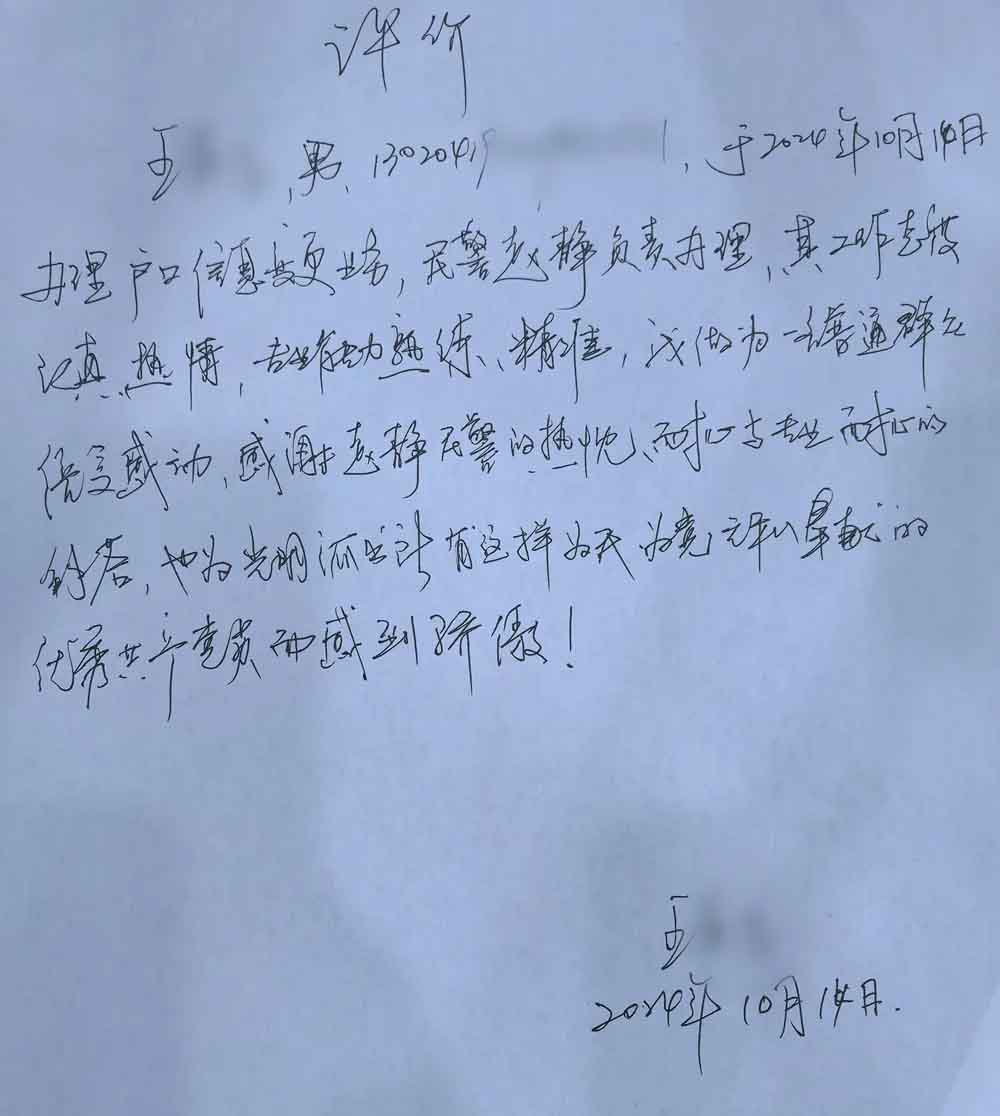 评价
王 ,男,13020419 1,于2024年10月14日
办理户口信息变更业务,民警赵静负责办理,其工作态度
认真、热情,专业能力熟练、精准,我做为一名普通群众
倍受感动,感谢赵静民警的热忱、耐心与专业耐心的
解答,也为光明派出所有这样为民为党 奉献的
优秀共产党员而感到骄傲!
王
2024年10月14日.